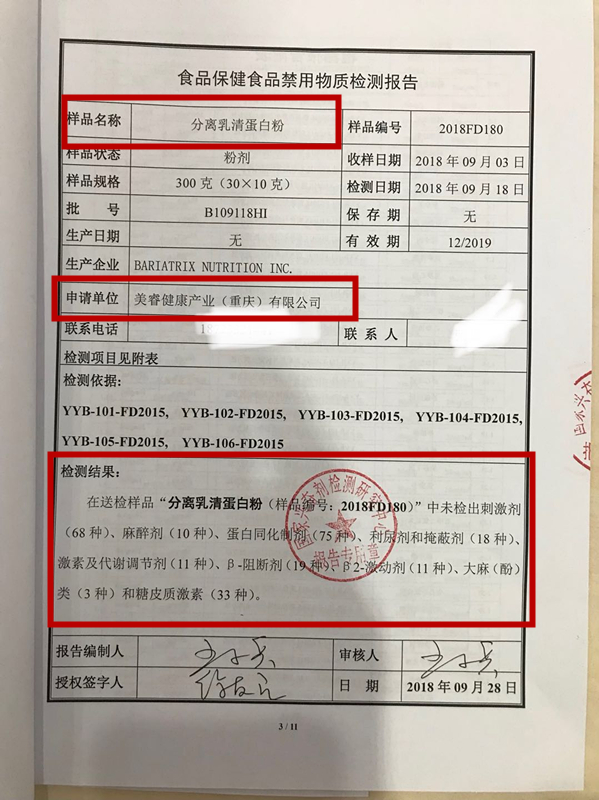 食品保健食品禁用物质检测报告
样品名称 分离乳清蛋白粉 样品编号 2018FD180
样品状态 粉剂 收样日期 2018 年 09 月 03 日
样品规格 300 克（30×10 克） 检测日期 2018 年 09 月 18 日
批 号 B109118HI 保 存 期 无
生产日期 无 有 效 期 12/2019
生产企业 BARIATRIX NUTRITION INC.
申请单位 美睿健康产业（重庆）有限公司
联系电话 18 联 系 人
检测项目见附表
检测依据：
YYB-101-FD2015, YYB-102-FD2015, YYB-103-FD2015, YYB-104-FD2015,
YYB-105-FD2015, YYB-106-FD2015
检测结果：
在送检样品“分离乳清蛋白粉（样品编号：2018FD180）”中未检出刺激剂
（68 种）、麻醉剂（10 种）、蛋白同化制剂（75 种）、利尿剂和掩蔽剂（18 种）、
激素及代谢调节剂（11 种）、β-阻断剂（19 种）、β2-激动剂（11 种）、大麻（酚）
类（3 种）和糖皮质激素（33 种）。
国家兴奋剂检测研究中心
报告专用章
报告编制人 审核人
授权签字人 日 期 2018 年 09 月 28 日
3 / 11